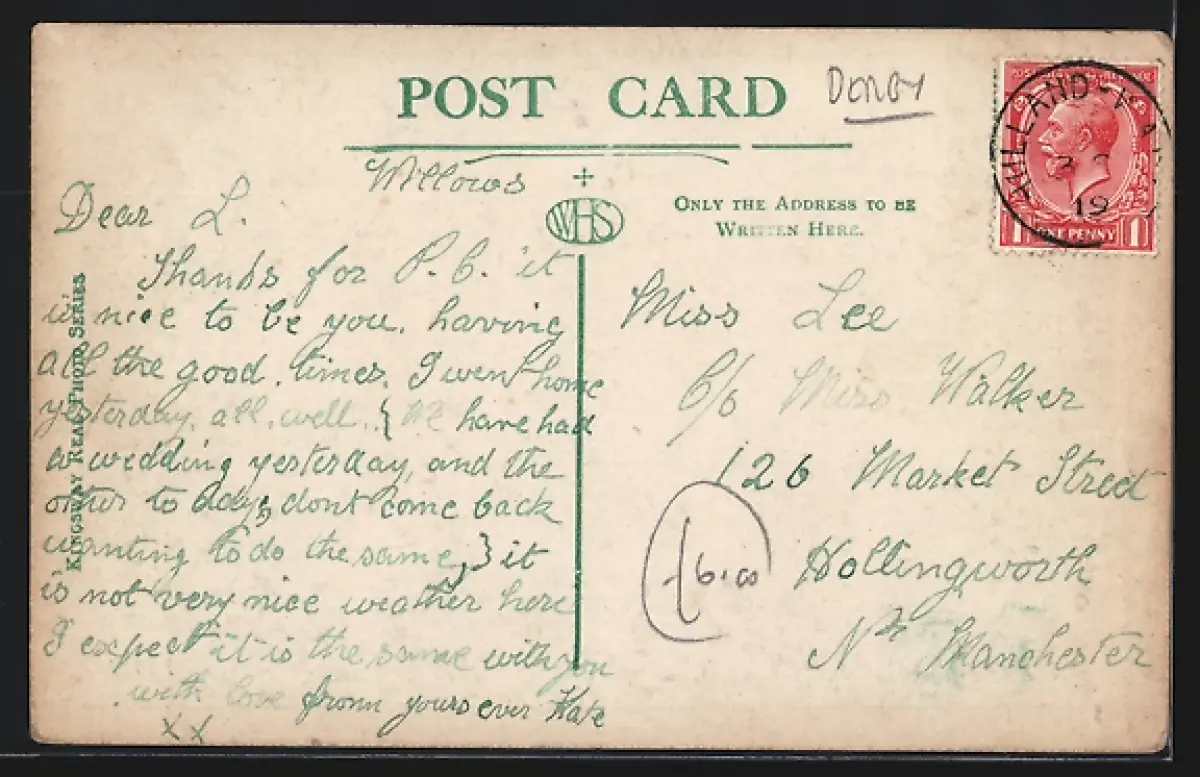 POST CARD
Willows
Dear L.
Thanks for P.C. it
is nice to be you, having
all the good, times, I went home
yesterday, all, well, { We have had
a wedding yesterday, and the
other to day, dont come back
wanting to do the same, } it
is not very nice weather here
I expect it is the same with you
with love from yours ever Kate
xx
KINGSWAY REAL PHOTO SERIES
WHS
ONLY THE ADDRESS TO BE
WRITTEN HERE.
Miss Lee
C/o Miss Walker
126 Market Street
Hollingworth
Nr Manchester
£6.00
HILLAND-
19
ONE PENNY
1 1